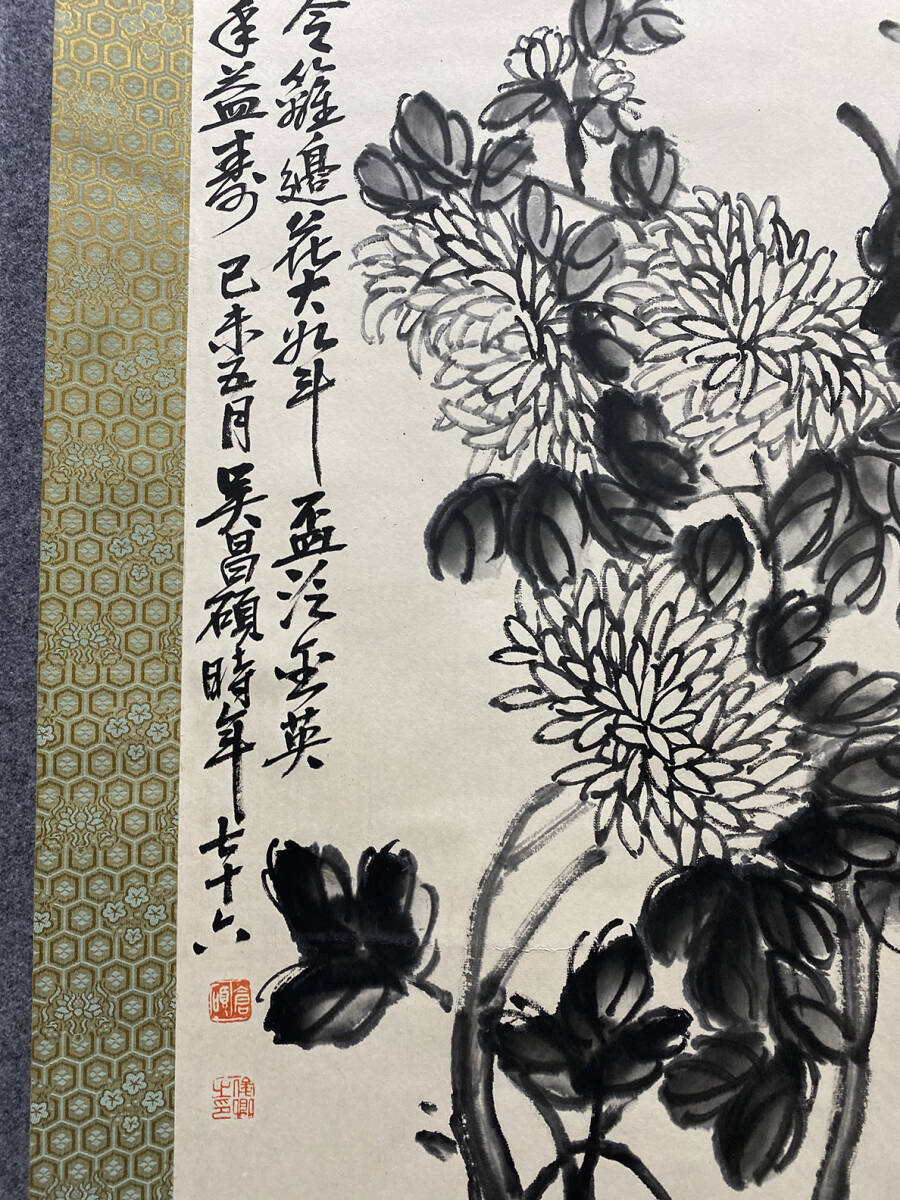 令籬邊花大如斗盃泛金英
年益壽己未五月吳昌碩時年七十六
倉碩
俊卿之印